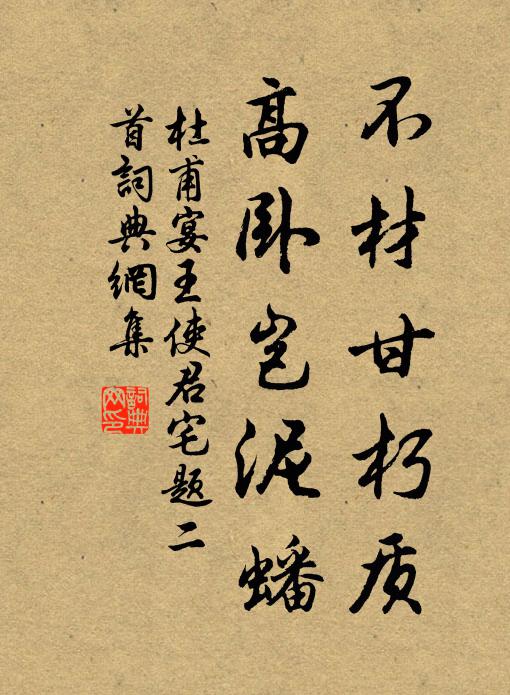 不材甘朽质
高卧岂泥蟠
杜甫宴王使君宅题二
首詞典網集
詞典网印